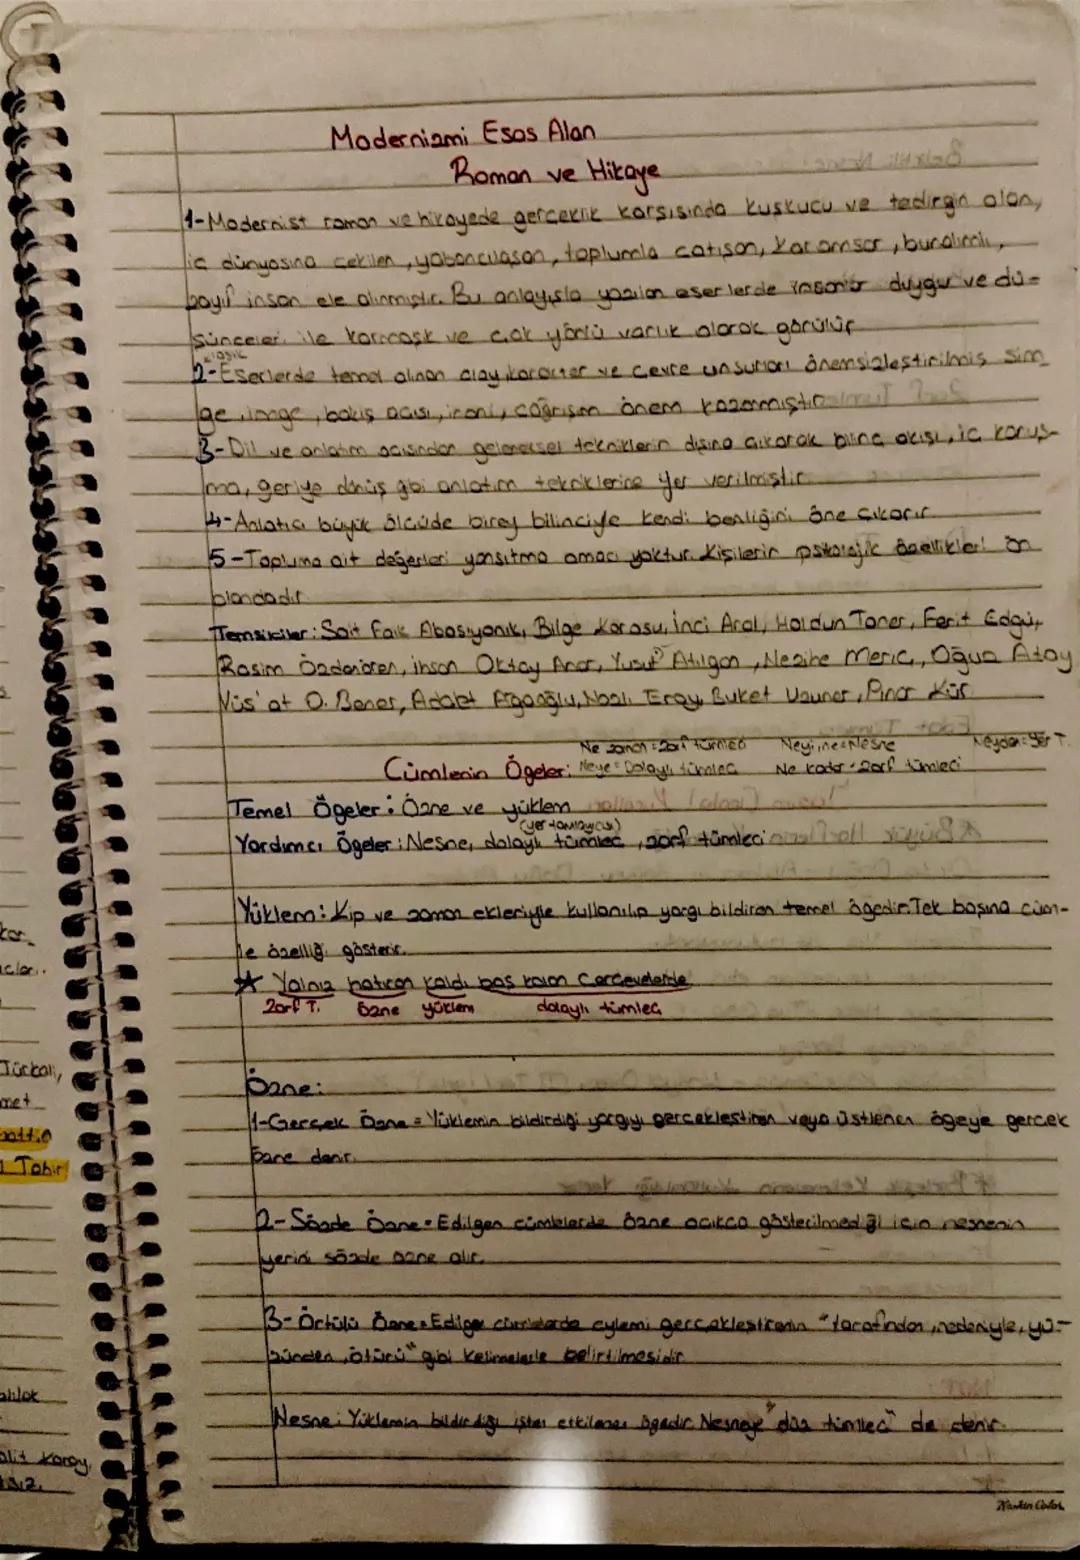 Modernizmi Esas Alan
Roman ve Hikaye
1-Modernist roman ve hikayede gerçeklik karşısında kuşkucu ve tedirgin olan,
iç dünyasına çekilen, yabancılaşan, toplumla çatışan, karamsar, bunalımlı,
kayıp insan ele alınmıştır. Bu anlayışla yazılan eserlerde insanlar duygu ve dü-
şünceleri ile karmaşık ve çok yönlü varlık olarak görülür
klasik
2-Eserlerde temel alınan olay, karakter ve çevre unsurları önemsizleştirilmiş sim
ge, imge, bakış açısı, ironi, çağrışım önem kazanmıştır
3-Dil ve anlatım açısından geleneksel tekniklerin dışına çıkarak bilinç akışı, iç konuş-
ma, geriye dönüş gibi anlatım tekniklerine yer verilmiştir.
4-Anlatıcı büyük ölçüde birey bilinciyle kendi benliğini öne çıkarır.
5-Topluma ait değerleri yansıtma amacı yoktur. Kişilerin psikolojik özellikleri ön
plandadır
Temsilciler: Sait Faik Abasıyanık, Bilge Karasu, İnci Aral, Haldun Taner, Ferit Edgü,
Rasim Özdenören, İhsan Oktay Anar, Yusuf Atılgan, Nezihe Meriç, Oğuz Atay
Vüs'at O. Bener, Adalet Ağaoğlu, Nazlı Eray, Buket Uzuner, Pınar Kür
Ne zaman = Zarf tümleci Neyi, ne = Nesne Neyden = Yer T.
Cümlenin Ögeleri: Neye = Dolaylı tümleç Ne kadar = Zarf tümleci
Temel Ögeler: Özne ve yüklem
(yer tamlayıcısı)
Yardımcı Ögeler: Nesne, dolaylı tümleç, zarf tümleci
Yüklem: Kip ve zaman ekleriyle kullanılıp yargı bildiren temel ögedir. Tek başına cüm-
le özelliği gösterir.
★ Yalnız hatıran kaldı boş kalan çerçevelerde
Zarf T. özne yüklem dolaylı tümleç
Özne:
1-Gerçek Özne = Yüklemin bildirdiği yargıyı gerçekleştiren veya üstlenen ögeye gerçek
özne denir.
2-Sözde Özne = Edilgen cümlelerde özne açıkça gösterilmediği için nesnenin
yerini sözde özne alır.
3-Örtülü Özne = Edilgen cümlelerde eylemi gerçekleştirenin "tarafından, nedeniyle, yü-
zünden, ötürü" gibi kelimelerle belirtilmesidir
Nesne: Yüklemin bildirdiği işten etkilenen ögedir. Nesneye "düz tümleç" de denir.
kor
açları..
Türkali,
met
Tahir
olit Karay,